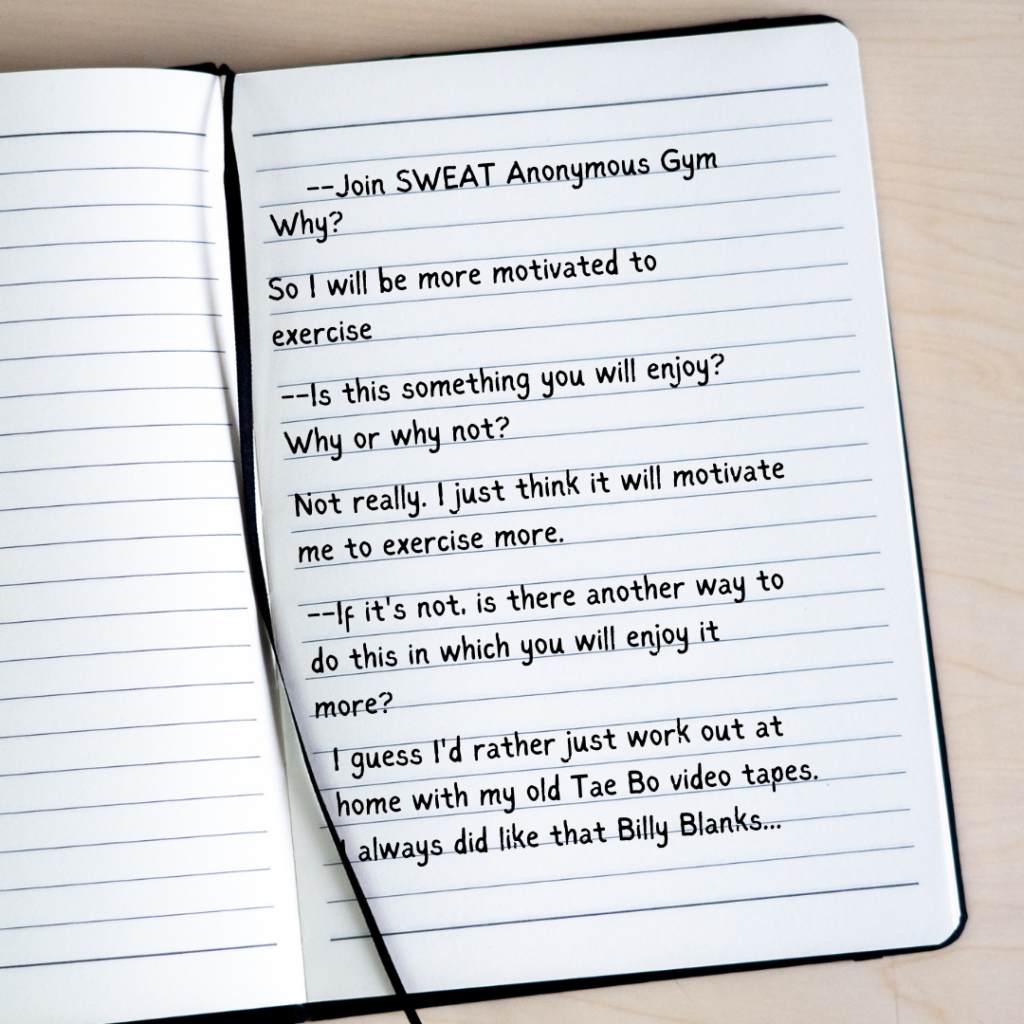 --Join SWEAT Anonymous Gym
Why?
So I will be more motivated to
exercise
--Is this something you will enjoy?
Why or why not?
Not really. I just think it will motivate
me to exercise more.
--If it's not, is there another way to
do this in which you will enjoy it
more?
I guess I'd rather just work out at
home with my old Tae Bo video tapes.
I always did like that Billy Blanks...